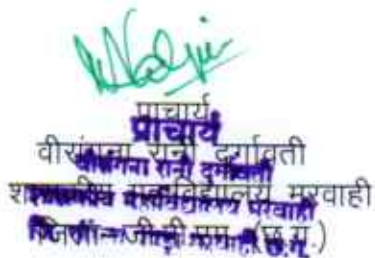 प्राचार्य
प्राचार्य
वीरांगना रानी दुर्गावती
वीरांगना रानी दुर्गावती
शासकीय महाविद्यालय मरवाही
शासकीय महाविद्यालय मरवाही
जिला (छ.ग.)